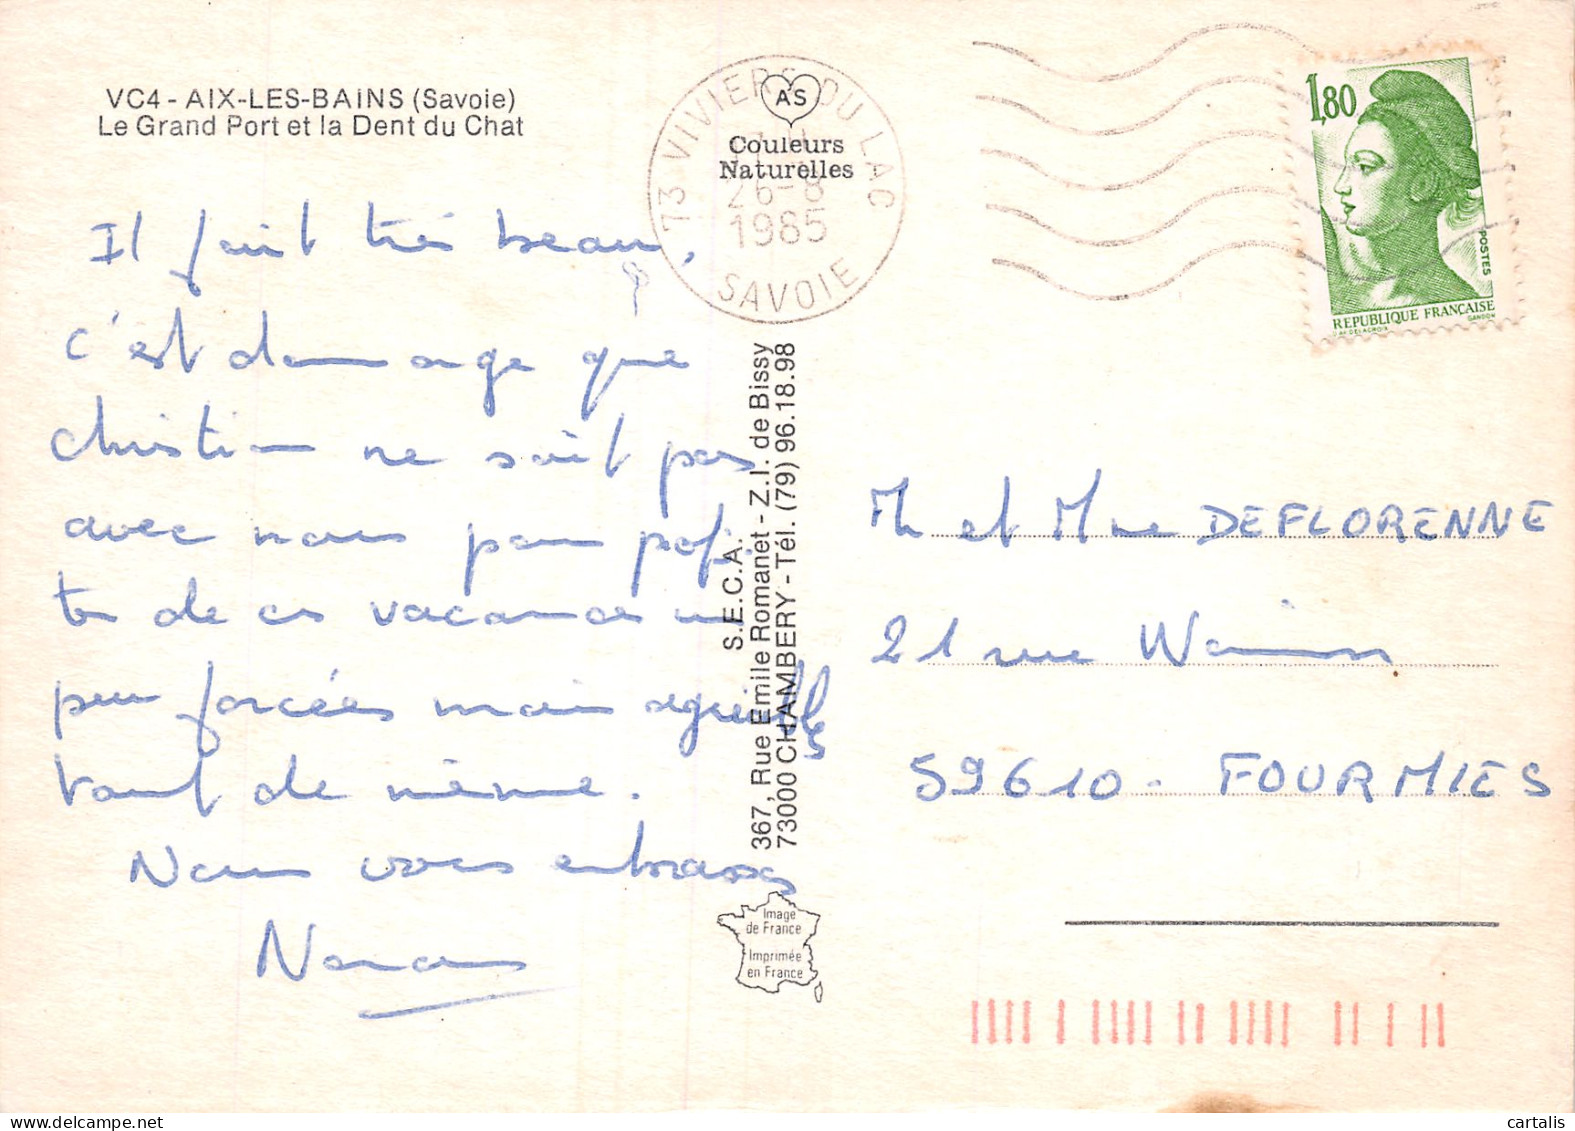 VC4 - AIX-LES-BAINS (Savoie)
Le Grand Port et la Dent du Chat
Il fait très beau,
c'est dommage que
Christian ne soit pas
avec nous pour profi
ter de ces vacances un
peu forcées mais agréables
tout de même.
Nous vous embrassons
73 VIVIERS DU LAC
26-8
1985
SAVOIE
AS
Couleurs
Naturelles
S.E.C.A.
367, Rue Emile Romanet - Z.I. de Bissy
73000 CHAMBERY - Tél. (79) 96.18.98
Image
de France
Imprimée
en France
1,80
POSTES
REPUBLIQUE FRANÇAISE
D'AP. DELACROIX
GANDON
M et Mme DEFLORENNE
21 rue
59610 - FOURMIES
cartalis